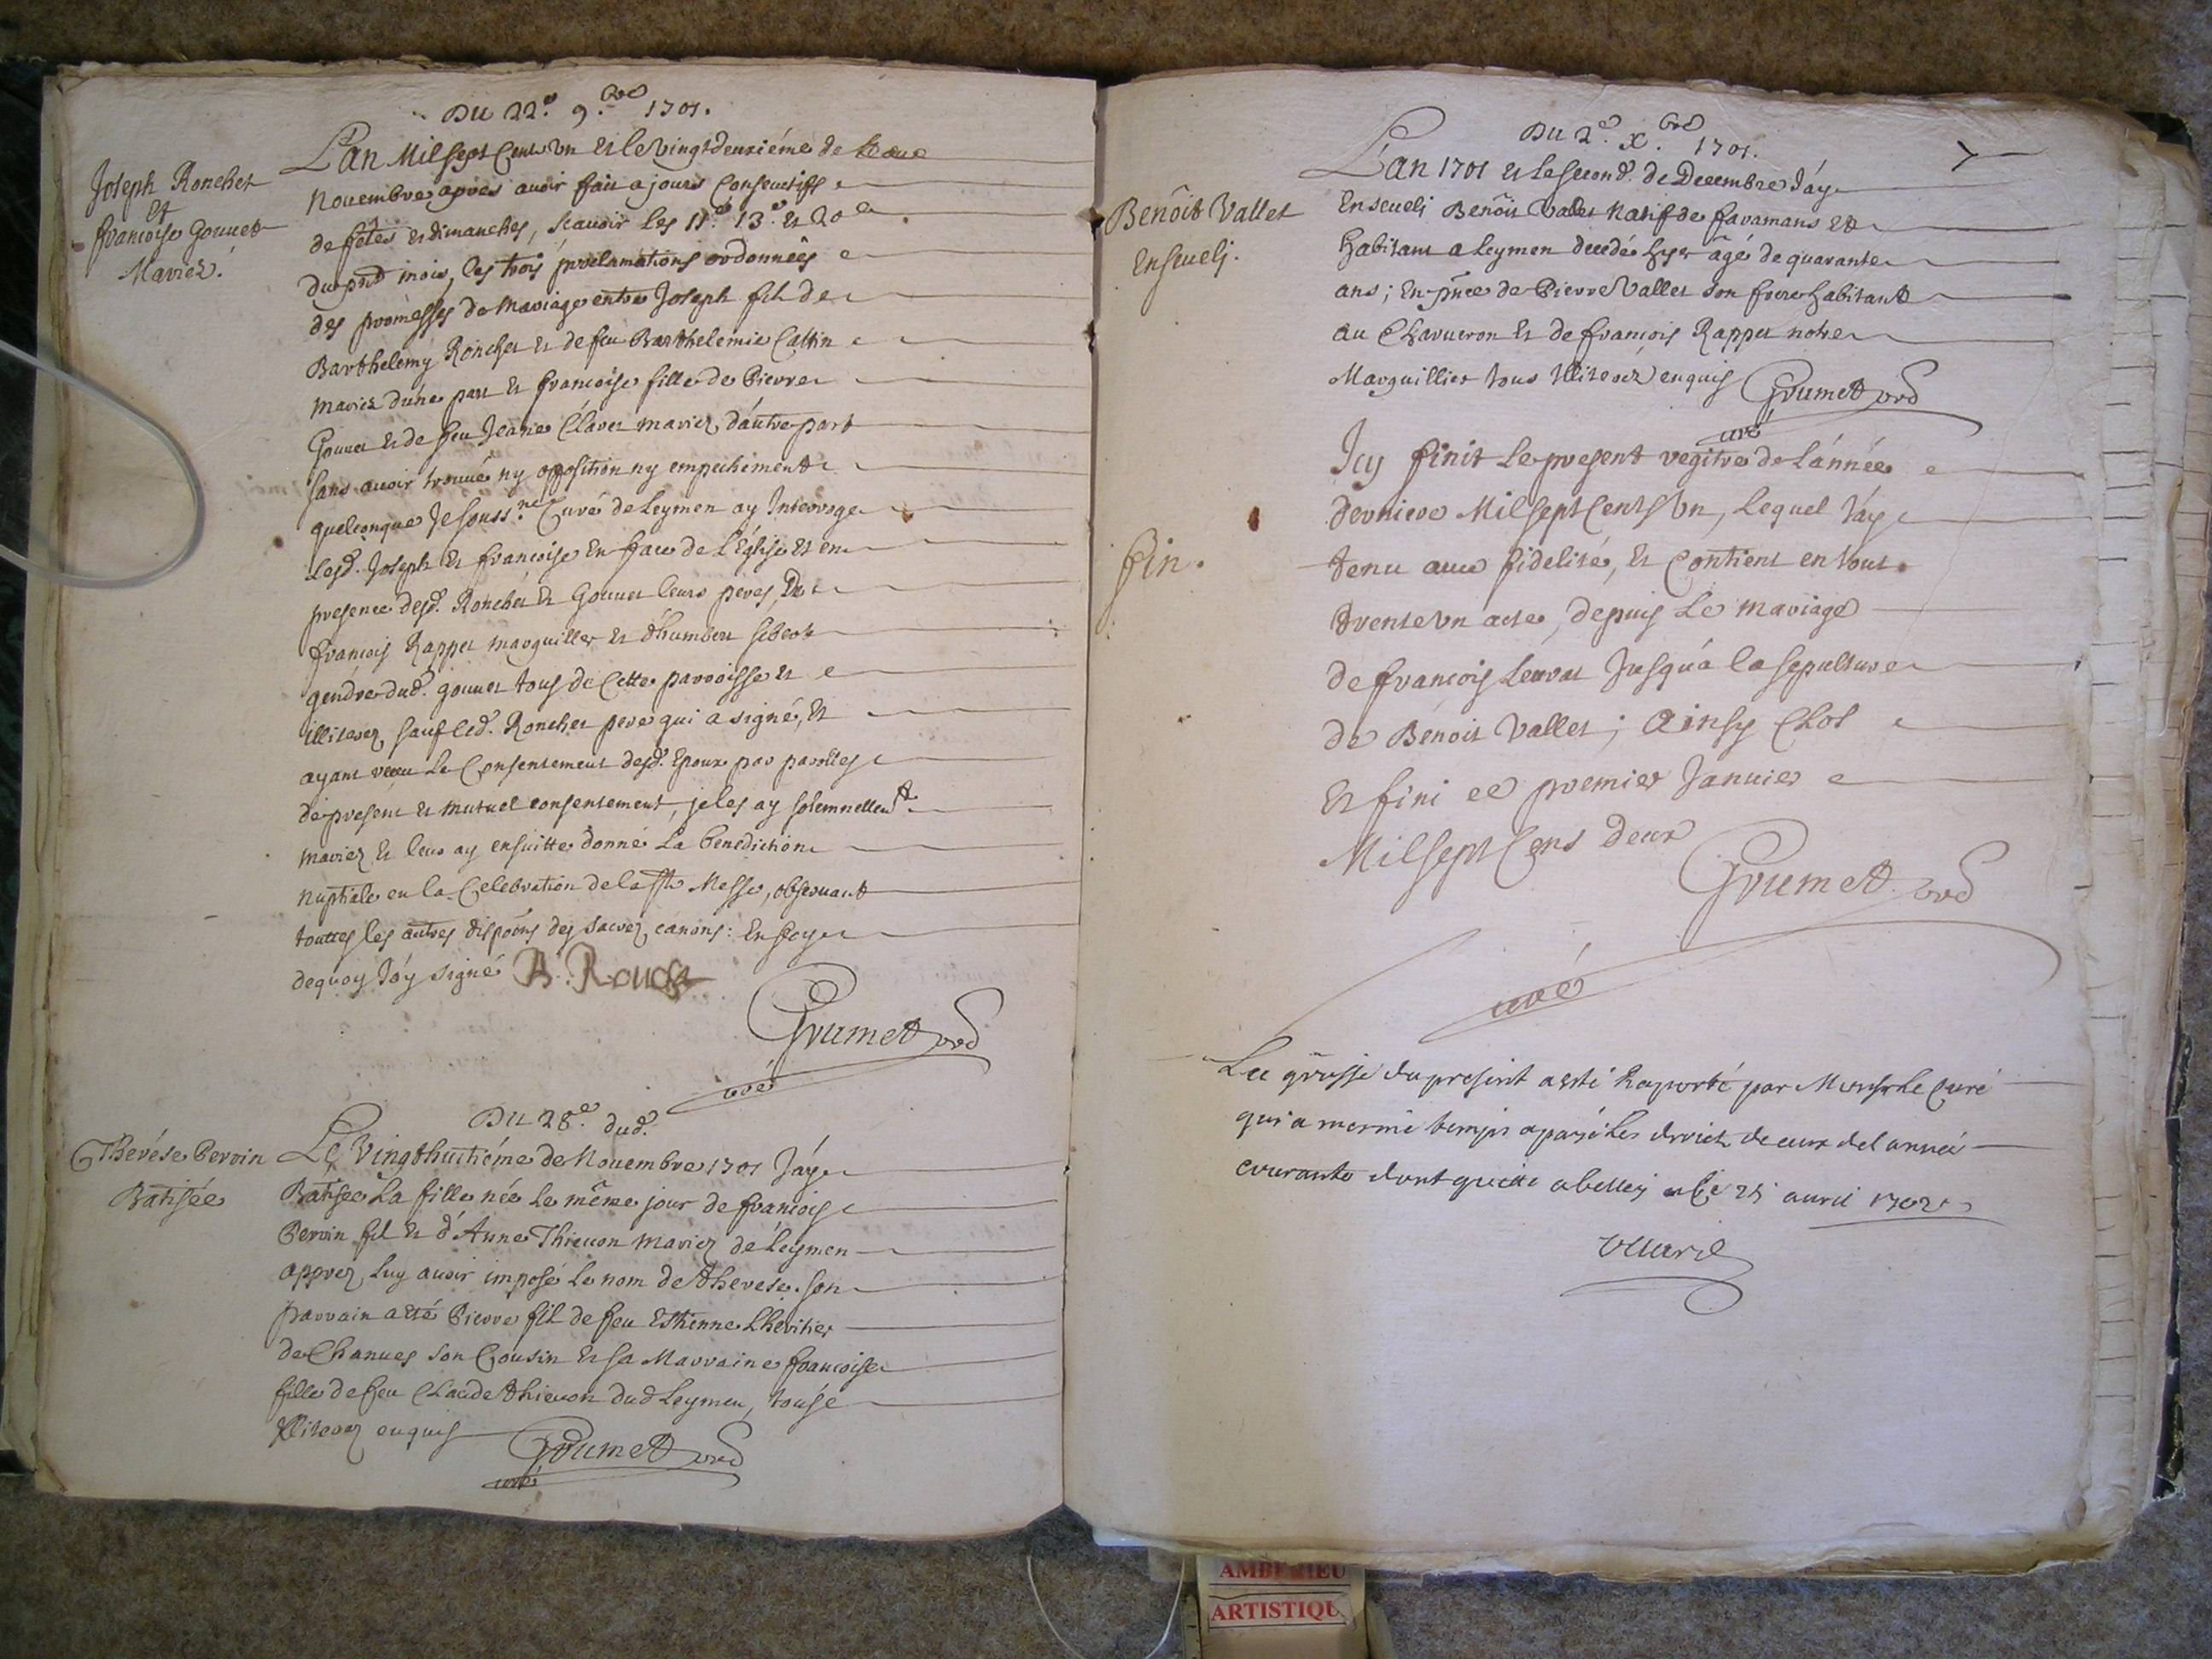 Du 22.e 9.bre 1701.
Joseph Ronchet
et
francoise Gouuet
Mariez.
L'an Mil sept Cent Vn et le Vingt deuxiéme de
Nouembre apres auoir fait a jours Consecutifs
de fétes et dimanches, scauoir les 11.e 13.e et 20.e
du pnt mois, les trois proclamations ordonneés
des promésses de Mariage entre Joseph fil de
Barthelemy Ronchet et de feu Barthelemie Cattin
mariez d'úne part et francoise fille de Pierre
Gouuet et de feu Jeanne Claret mariez, d'aútre part
sans auoir trouué ny opposition ny empechement
quelconque Je souss.né Curé de Leymen ay Interrogé
lesd. Joseph et francoise En face de L'Eglise et en
presence desd. Ronchet et Gouuet leurs peres, De
francois Rappet marguiller et d'humbert
gendre dud. gouuet tous de Cette parroisse et
illiterez, sauf led. Ronchet pere qui a signé, Et
ayant receu le Consentement desd. Epoux par parolles
de present et mutuel consentement, je les ay solemnellem.t
mariez et leur ay ensuitte donné La benediction
Nuptiale en la Celebration de la ste Messe, obseruant
touttes les autres dispoôns des sacrez canons: En foy
dequoy J'ay signé B. Ronchet
Grumet
curé
Du 28.e dud.
Therése Perrin
Batisée
Le Vingthuitiéme de Nouembre 1701 J'ay
Batisée La fille née le même jour de francois
Perrin fil et d'Anne Thieuon mariez de Leymen
apprez luy auoir imposé le nom de therese. son
parrain a eté Pierre fil de feu Estienne Lhéritier
de Chanues son Cousin et sa Marraine francoise
fille de feu Claude thieuon dud Leymen, tous
Illiterez enquis
Grumet
curé
Du 2.e X.bre 1701.
7
Benôit Vallet
Enseueli.
L'an 1701 et le second. de Decembre J'áy
Enseueli Benôit Vallet Natif de faramans et
habitant a Leymen decedé hyer âgé de quarante
ans; En pnce de Pierre Vallet son frere habitant
au Charueron et de francois Rappet notre
Marguillier tous Illiterez enquis Grumet
curé
fin.
Icy finit le present regitre de L'année
derniere Mil sept Cents Vn, Lequel J'ay
tenu auec fidelité, et Contient en tout
trente vn acte, depuis Le mariage
de francois Jusqu'a la sepulture
de Benoit Vallet; Ainsy Clos
et fini ce premier Januier
Mil sept Cens deux
Grumet
curé
La grosse du present a esté Raporté par Monsr Le Curé
qui a mesme temps a payé les droict de ceux de l'année
courante dont quitte a belley ce 25 auril 1702
AMBERIEU
ARTISTIQU